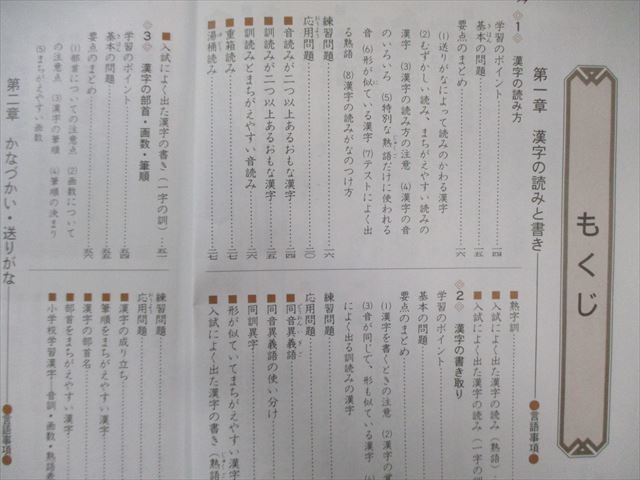 もくじ
第一章 漢字の読みと書き
●言語事項●
1 漢字の読み方
学習のポイント
基本の問題
要点のまとめ
(1)送りがなによって読みのかわる漢字
(2)むずかしい読み、まちがえやすい読みの
漢字 (3)漢字の読み方の注意 (4)漢字の音
のいろいろ (5)特別な熟語だけに使われる
音 (6)形が似ている漢字 (7)テストによく出
る熟語 (8)漢字の読みがなのつけ方
練習問題
応用問題
■音読みが二つ以上あるおもな漢字
■訓読みが二つ以上あるおもな漢字
■訓読みとまちがえやすい音読み
■重箱読み
■湯桶読み
■熟字訓
■入試によく出た漢字の読み(熟語)
■入試によく出た漢字の読み(一字の訓
2 漢字の書き取り
学習のポイント
基本の問題
要点のまとめ
(1)漢字を書くときの注意 (2)漢字の音
(3)音が同じで、形も似ている漢字 (4)
によく出る訓読みの漢字
練習問題
応用問題
■同音異義語
■同音異義語の使い分け
■同訓異字
■形が似ていてまちがえやすい漢字
■入試によく出た漢字の書き(熟語
■入試によく出た漢字の書き(一字の訓)
3 漢字の部首・画数・筆順
学習のポイント
基本の問題
要点のまとめ
(1)部首についての注意点 (2)画数について
の注意点 (3)漢字の筆順 (4)筆順の決まり
(5)まちがえやすい画数
練習問題
応用問題
■漢字の成り立ち
■筆順をまちがえやすい漢字
■漢字の部首名
■部首をまちがえやすい漢字
■小学校学習漢字―音訓・画数・熟語表
第二章 かなづかい・送りがな
●言語事項●